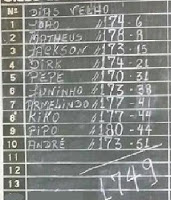 Nº DIAS VELHO
1 JOÃO 174-6
2 MATHEUS 176-9
3 JACKSON 173-15
4 DIRK 174-21
5 PEPE 170-31
6 JUNINHO 173-38
7 ARMELINDO 177-41
8 KIKO 177-44
9 PIPO 180-44
10 ANDRÉ 173-51
11
12
13
1749